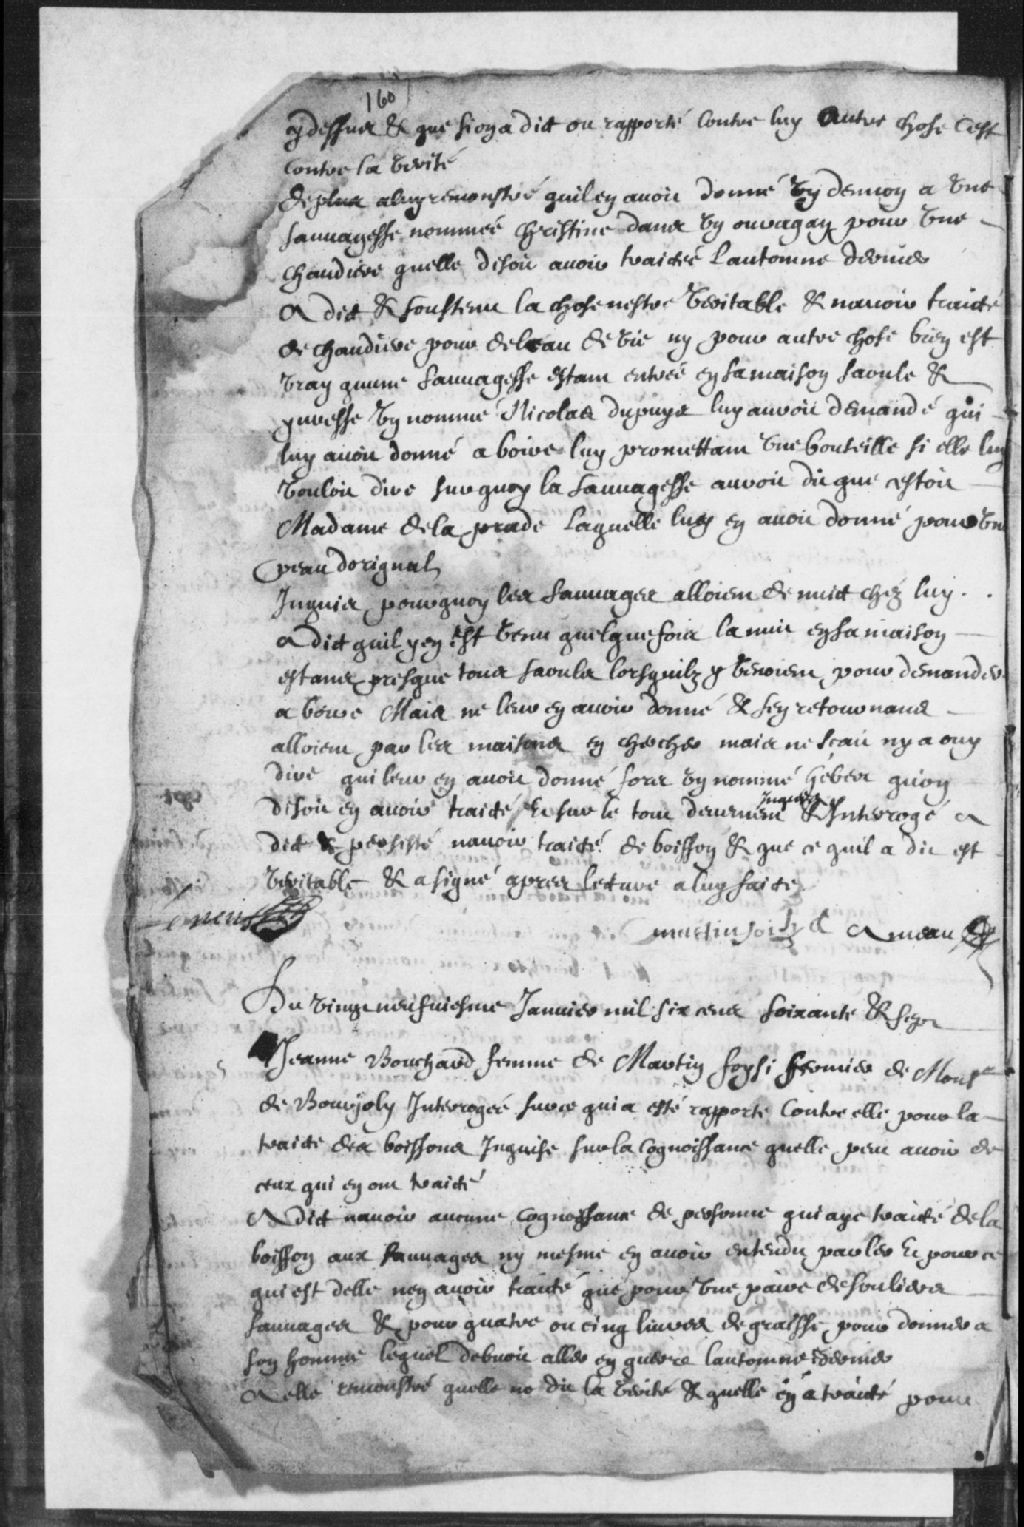 160
cy dessus & que si on a dit ou rapporté contre luy autre chose cest
contre la verité
De plus a luy remonstré quil en avoit donné un demon a une
sauvagesse nommée christine dans un ouragan pour une
chaudiere quelle disoit avoir traictée Lautomne dernier
A dit & soustenu la chose nestre veritable & navoir traicté
de chaudiere pour de leau de vie ny pour autre chose bien est
vray quune sauvagesse estant entrée en sa maison saoule &
yvresse un nommé Nicolas dupuys luy auroit demandé qui
luy avoit donné a boire luy promettant une bouteille si elle luy
vouloit dire sur quoy la sauvagesse auroit dit que cestoit
Madame de la prade Laquelle luy en avoit donné pour une
peau dorignal
Inquis pourquoy les sauvages alloient de nuict chez luy
A dict quil y en est venu quelque fois la nuit en sa maison
estans presque tous saouls lorsquilz y venoient pour demander
a boire Mais ne leur en avoir donné & sen retournans
alloient par les maisons en chercher mais ne scait ny a ouy
dire qui leur en avoit donné fors un nommé héber quon
disoit en avoir traicté Et sur le tout deuement Inquis & Interrogé a
dit & persisté navoir traicté de boisson & que ce quil a dit est
veritable & a signé apres lecture a luy faicte
martin foisy Ameau
Du vingt neufviesme Janvier mil six cens soixante & sept
Jeanne Bouchard femme de Martin foysi fermier de Monsr
de Bourjoly Interrogée sur ce qui a esté rapporté contre elle pour la
traicte des boissons Inquise sur la cognoissance quelle peut avoir de
ceux qui en ont traicté
A dict navoir aucune cognoissance de personne qui aye traicté de la
boisson aux sauvages ny mesme en avoir entendu parler Et pour ce
qui est delle nen avoir traicté que pour une paire de souliers
sauvages & pour quatre ou cinq livres de graisse pour donner a
son homme lequel debvoit aller en guerre lautomne dernier
A elle remonstré quelle ne dit la verité & quelle en a traicté pour